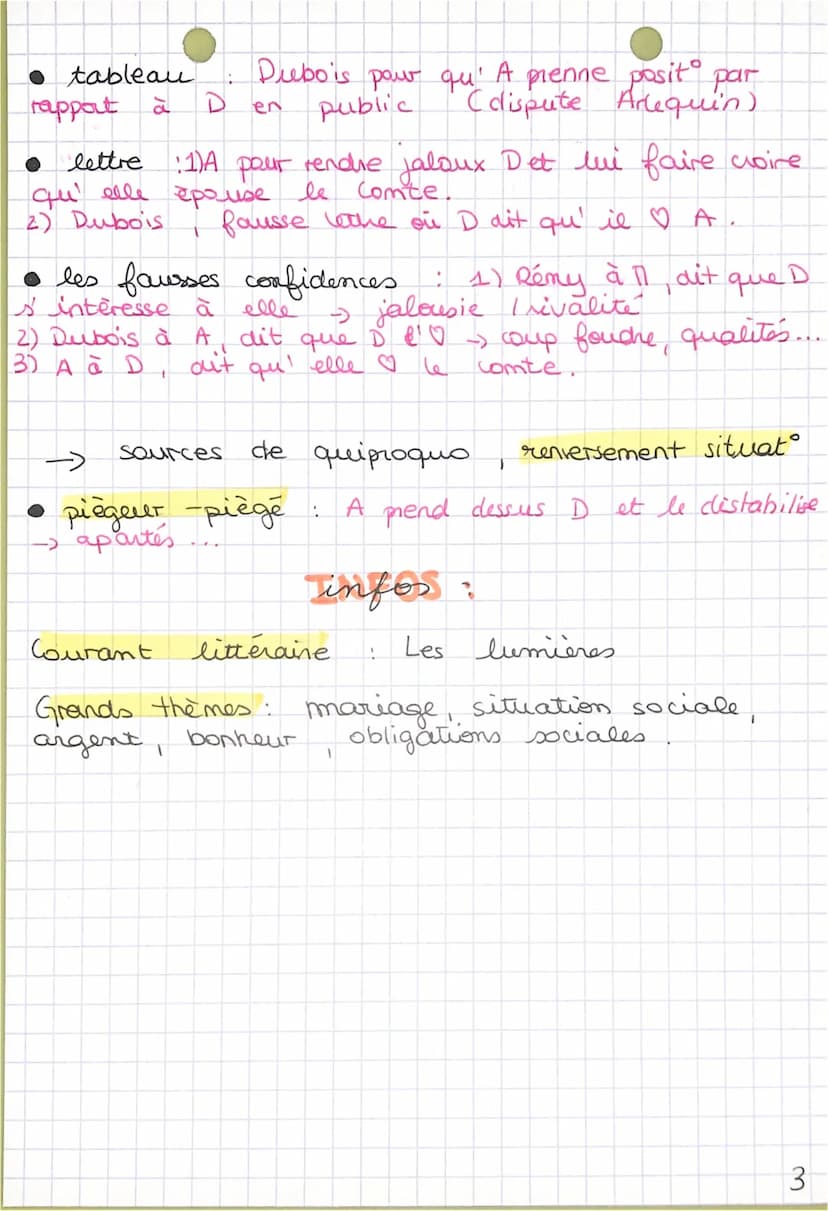 • tableau : Dubois pour qu' A prenne posit° par
rapport à D en public (dispute Arlequin)
• lettre : 1) A pour rendre jaloux D et lui faire croire
qu' elle épouse le Comte.
2) Dubois , fausse lettre où D dit qu' il ♡ A .
• les fausses confidences : 1) Rémy à M , dit que D
s' intèresse à elle → jalousie / rivalité
2) Dubois à A , dit que D l'♡ → coup foudre, qualités...
3) A à D , dit qu' elle ♡ le comte .
→ sources de quiproquo , renversement situat°
• piègeur - piègé : A prend dessus D et le distabilise
→ apartés ...
infos :
Courant littéraire : Les lumières
Grands thèmes : mariage, situation sociale,
argent , bonheur , obligations sociales .
3